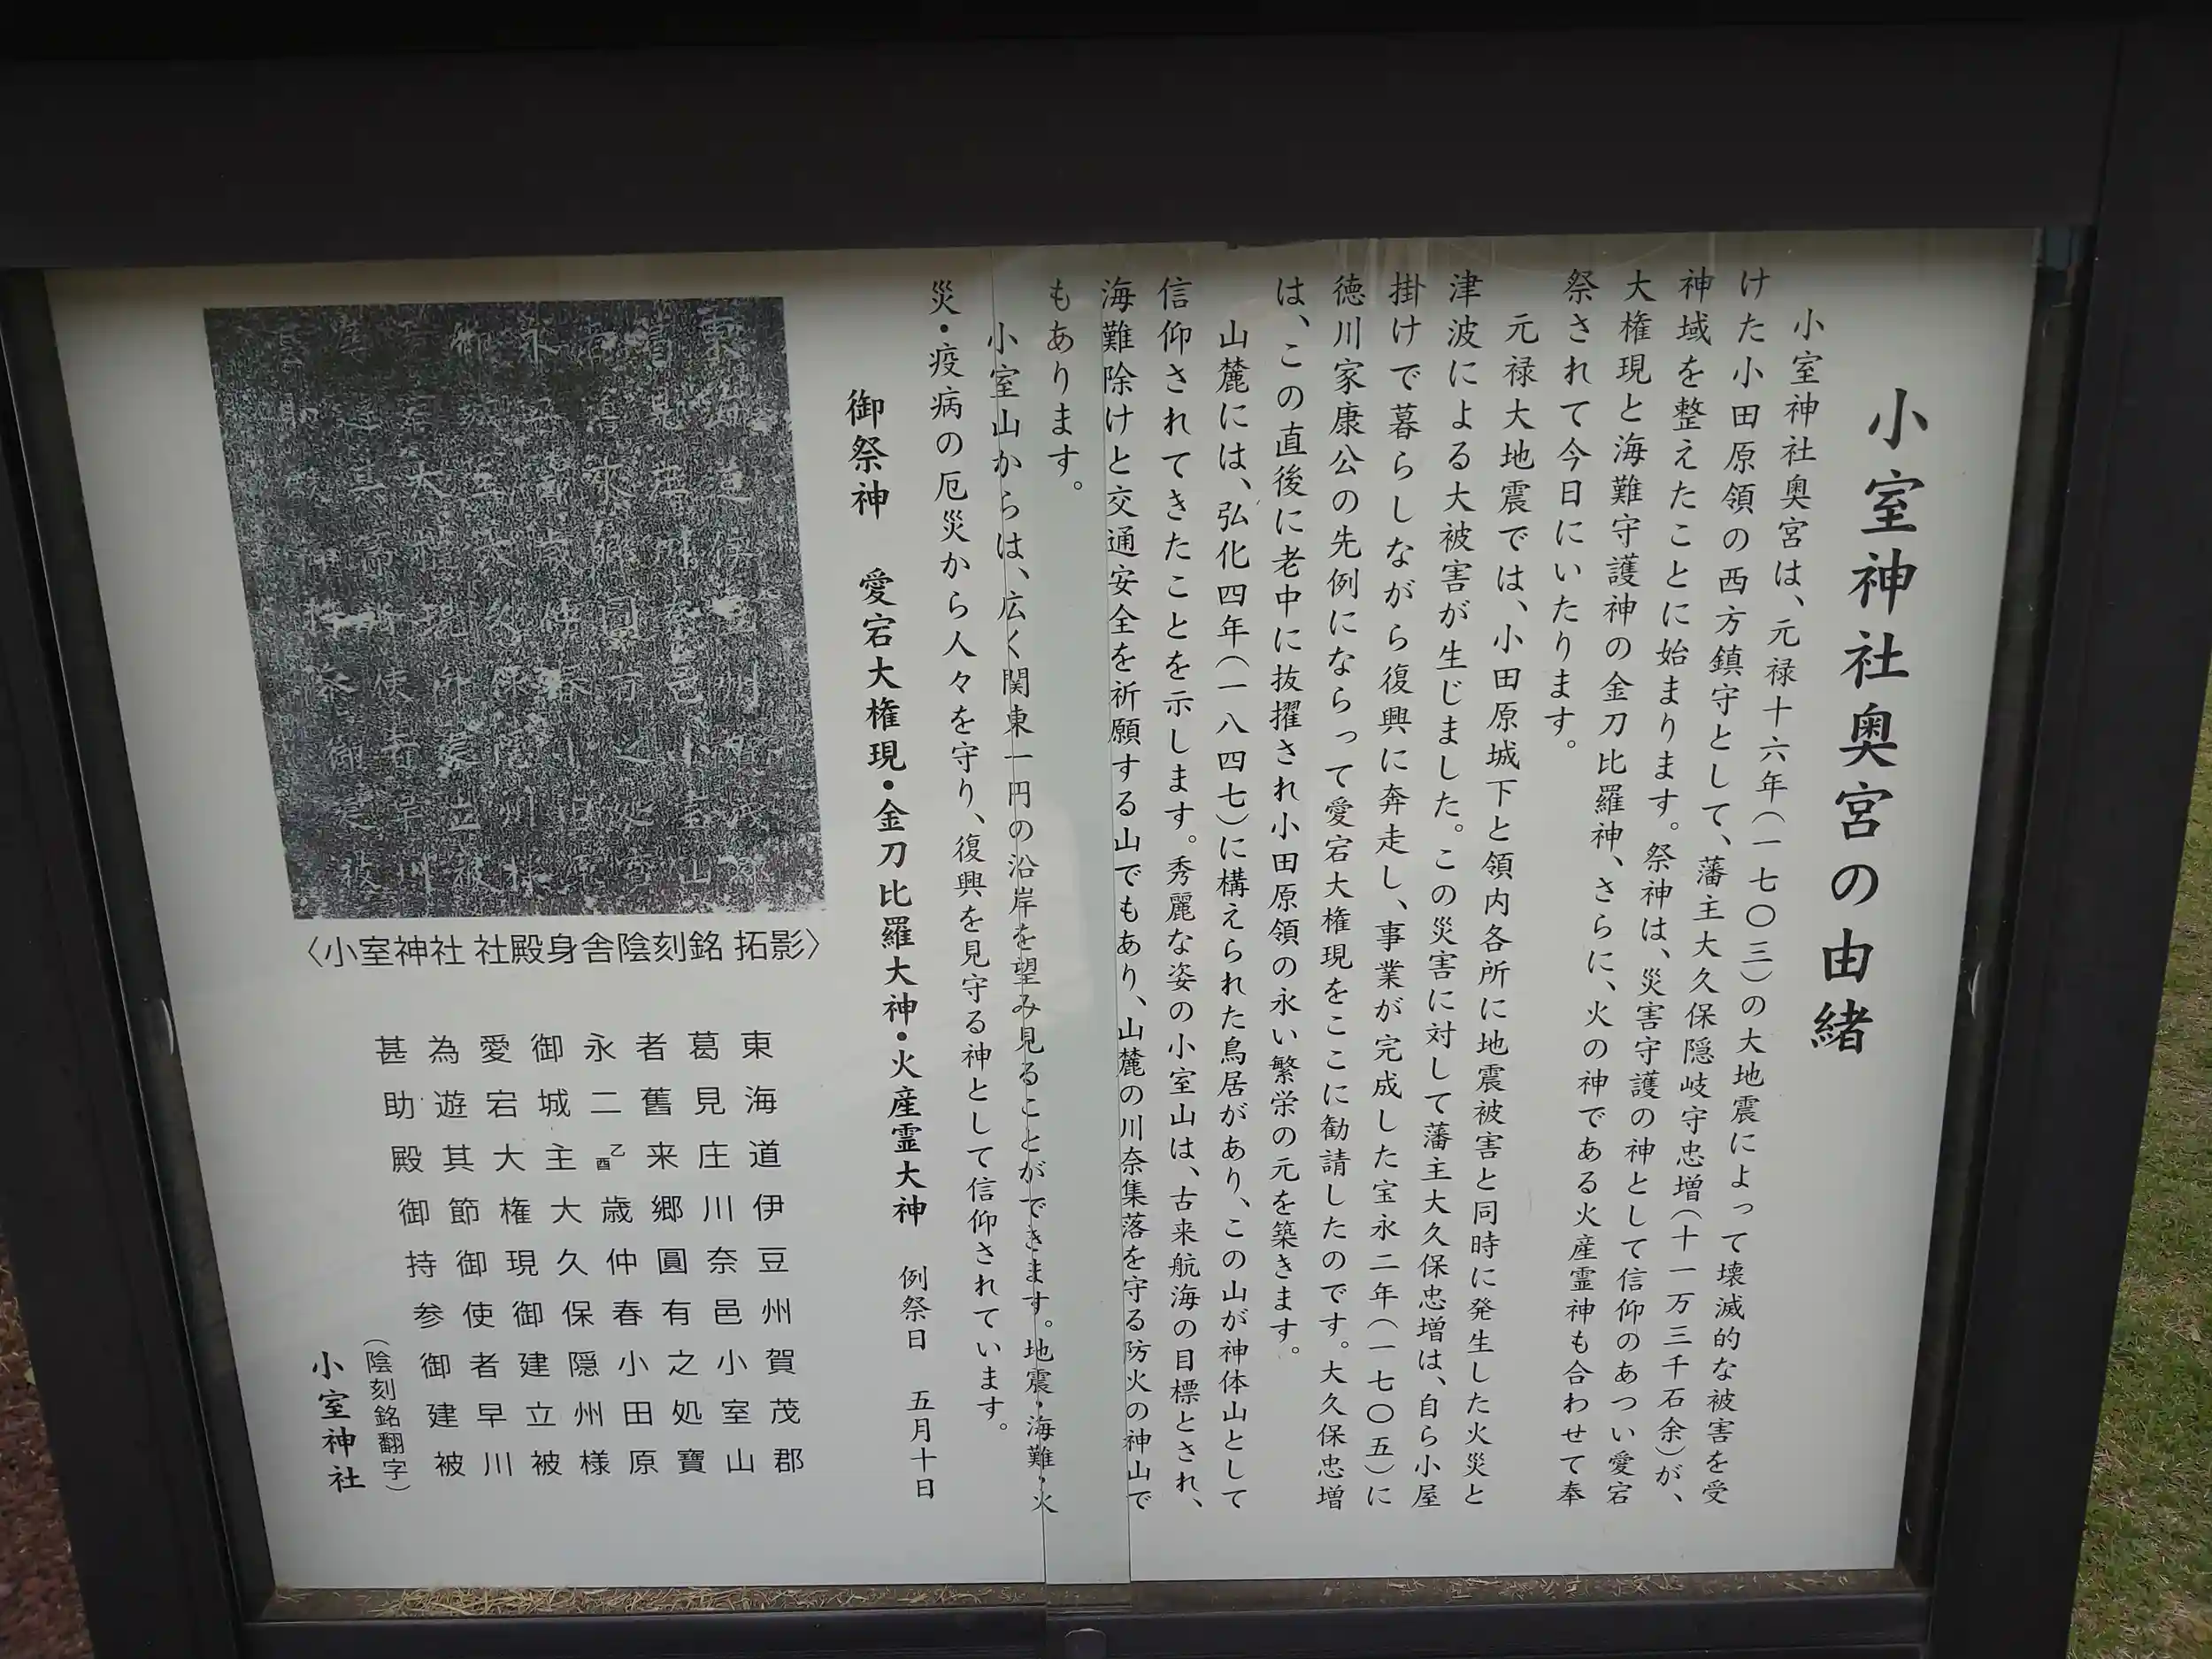 小室神社奥宮の由緒
小室神社奥宮は、元禄十六年(一七〇三)の大地震によって壊滅的な被害を受
けた小田原領の西方鎮守として、藩主大久保隠岐守忠増(十一万三千石余)が、
神域を整えたことに始まります。祭神は、災害守護の神として信仰のあつい愛宕
大権現と海難守護神の金刀比羅神、さらに、火の神である火産霊神も合わせて奉
祭されて今日にいたります。
元禄大地震では、小田原城下と領内各所に地震被害と同時に発生した火災と
津波による大被害が生じました。この災害に対して藩主大久保忠増は、自ら小屋
掛けで暮らしながら復興に奔走し、事業が完成した宝永二年(一七〇五)に
徳川家康公の先例にならって愛宕大権現をここに勧請したのです。大久保忠増
は、この直後に老中に抜擢され小田原領の永い繁栄の元を築きます。
山麓には、弘化四年(一八四七)に構えられた鳥居があり、この山が神体山として
信仰されてきたことを示します。秀麗な姿の小室山は、古来航海の目標とされ、
海難除けと交通安全を祈願する山でもあり、山麓の川奈集落を守る防火の神山で
もあります。
小室山からは、広く関東一円の沿岸を望み見ることができます。地震・海難・火
災・疫病の厄災から人々を守り、復興を見守る神として信仰されています。
御祭神 愛宕大権現・金刀比羅大神・火産霊大神 例祭日 五月十日
〈小室神社 社殿身舎陰刻銘 拓影〉
東海道伊豆州賀茂郡
葛見庄川奈邑小室山
者舊来郷圓有之処寶
永二乙酉歳仲春小田原
御城主大久保隠州様
愛宕大権現御建立被
為遊其節御使者早川
甚助殿御持参御建被
(陰刻銘翻字)
小室神社